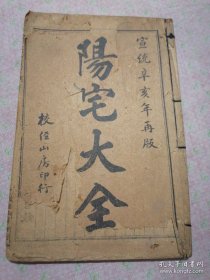 宣統辛亥年再版
陽宅大全
校經山房印行